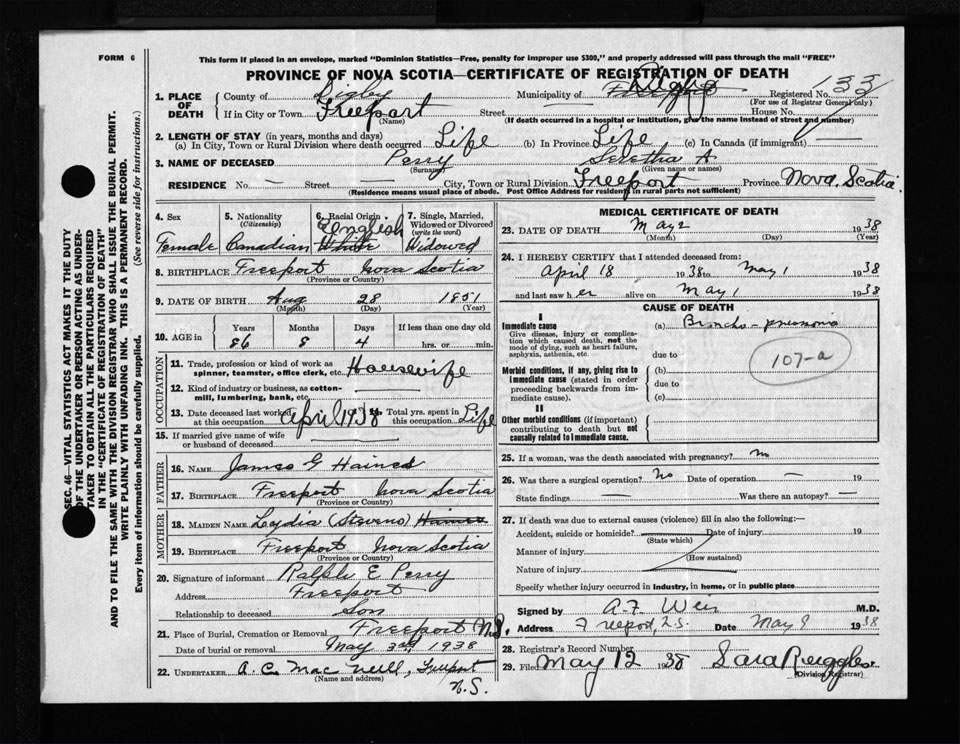 FORM 6
This form if placed in an envelope, marked "Dominion Statistics—Free, penalty for improper use $300," and properly addressed will pass through the mail "FREE"
PROVINCE OF NOVA SCOTIA—CERTIFICATE OF REGISTRATION OF DEATH
1. PLACE OF DEATH
County of Digby Municipality of Digby Registered No. 133
(For use of Registrar General only)
If in City or Town Freeport Street House No.
(Name) (If death occurred in a hospital or institution, give the name instead of street and number)
2. LENGTH OF STAY (in years, months and days)
(a) In City, Town or Rural Division where death occurred Life (b) In Province Life (c) In Canada (if immigrant)
3. NAME OF DECEASED Perry Seretha A
(Surname) (Given name or names)
RESIDENCE No. — Street — City, Town or Rural Division Freeport Province Nova Scotia.
(Residence means usual place of abode. Post Office Address for residents in rural parts not sufficient)
4. Sex Female
5. Nationality (Citizenship) Canadian
6. Racial Origin English White
7. Single, Married, Widowed or Divorced (write the word) Widowed
8. BIRTHPLACE Freeport Nova Scotia
(Province or Country)
9. DATE OF BIRTH Aug 28 1851
(Month) (Day) (Year)
10. AGE in Years 86 Months 8 Days 4 If less than one day old hrs. or min.
OCCUPATION
11. Trade, profession or kind of work as spinner, teamster, office clerk, etc. Housewife
12. Kind of industry or business, as cotton-mill, lumbering, bank, etc.
13. Date deceased last worked at this occupation April 1938 14. Total yrs. spent in this occupation Life
15. If married give name of wife or husband of deceased
FATHER
16. NAME James G Haines
17. BIRTHPLACE Freeport Nova Scotia
(Province or Country)
MOTHER
18. MAIDEN NAME Lydia (Stevens) Haines
19. BIRTHPLACE Freeport Nova Scotia
(Province or Country)
20. Signature of informant Ralph E Perry
Address Freeport
Relationship to deceased Son
21. Place of Burial, Cremation or Removal Freeport N.S.
Date of burial or removal May 3rd 1938
22. UNDERTAKER A. C. MacNeill, Freeport
(Name and address) N.S.
MEDICAL CERTIFICATE OF DEATH
23. DATE OF DEATH May 2 1938
(Month) (Day) (Year)
24. I HEREBY CERTIFY that I attended deceased from:
April 18 1938 to May 1 1938
and last saw h er alive on May 1 1938
CAUSE OF DEATH
I
Immediate cause
Give disease, injury or complication which caused death, not the mode of dying, such as heart failure, asphyxia, asthenia, etc.
(a) Broncho-pneumonia
due to
107-a
Morbid conditions, if any, giving rise to immediate cause (stated in order proceeding backwards from immediate cause).
(b)
due to
(c)
II
Other morbid conditions (if important) contributing to death but not causally related to immediate cause.
25. If a woman, was the death associated with pregnancy? no
26. Was there a surgical operation? No Date of operation — 19
State findings — Was there an autopsy? —
27. If death was due to external causes (violence) fill in also the following:—
Accident, suicide or homicide? Date of injury 19
(State which)
Manner of injury
(How sustained)
Nature of injury
Specify whether injury occurred in industry, in home, or in public place
Signed by A. F. Weir M.D.
Address Freeport, N.S. Date May 9 1938
28. Registrar's Record Number
29. Filed May 12 1938 Sara Ruggles
(Division Registrar)
SEC. 46—VITAL STATISTICS ACT MAKES IT THE DUTY
OF THE UNDERTAKER OR PERSON ACTING AS UNDER-
TAKER TO OBTAIN ALL THE PARTICULARS REQUIRED
IN THE "CERTIFICATE OF REGISTRATION OF DEATH"
AND TO FILE THE SAME WITH THE DIVISION REGISTRAR WHO SHALL ISSUE THE BURIAL PERMIT.
WRITE PLAINLY WITH UNFADING INK. THIS IS A PERMANENT RECORD.
Every item of information should be carefully supplied. (See reverse side for instructions.)